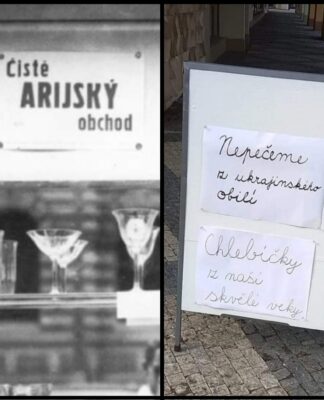 Čistě
ARIJSKÝ
obchod
Nepečeme
z ukrajinského
obilí
Chlebíčky
z naší
skvělé veky.